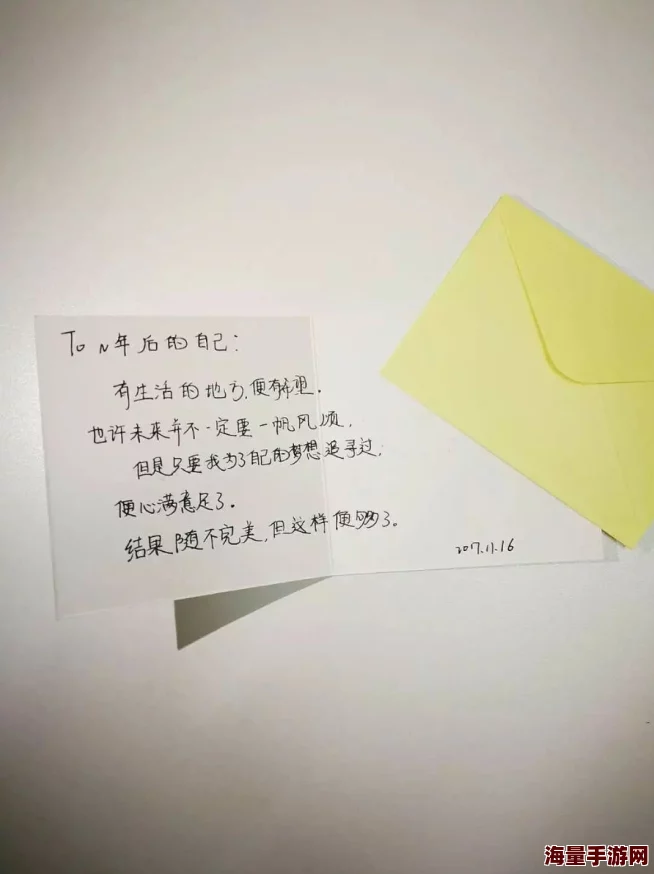 To N年后的自己:
有生活的地方,便有希望.
也许未来并不一定要一帆风顺,
但是只要我为了自己的梦想追寻过,
便心满意足了.
结果随不完美,但这样便够了。
207.11.16
海量手游网